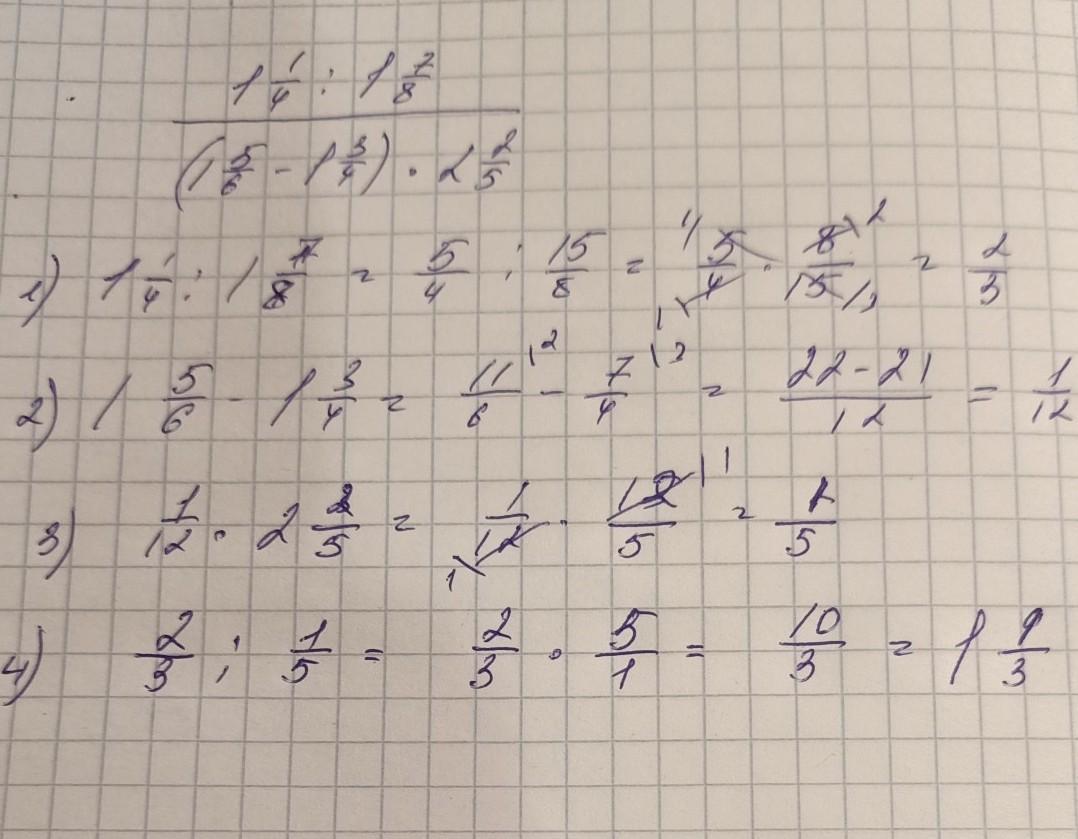 1 1/4 : 1 7/8
(1 5/6 - 1 3/4) · 2 2/5
1) 1 1/4 : 1 7/8 = 5/4 : 15/8 = 5/4 · 8/15 = 2/3
2) 1 5/6 - 1 3/4 = 11/6 - 7/4 = 22-21/12 = 1/12
3) 1/12 · 2 2/5 = 1/12 · 12/5 = 1/5
4) 2/3 : 1/5 = 2/3 · 5/1 = 10/3 = 1 1/3